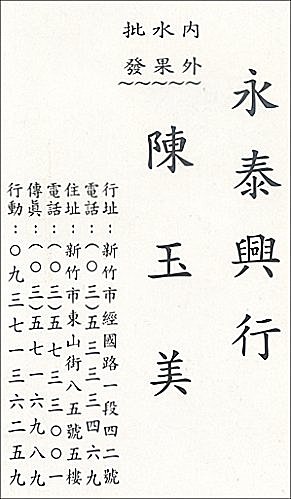 永泰興行
內外
水果
批發
陳玉美
行址：新竹市經國路一段四二號
電話：（〇三）五三三三四六九
住址：新竹市東山街八五號五樓
電話：（〇三）五七三三〇〇一
傳真：（〇三）五七一六九八九
行動：〇九三七一三六二五九